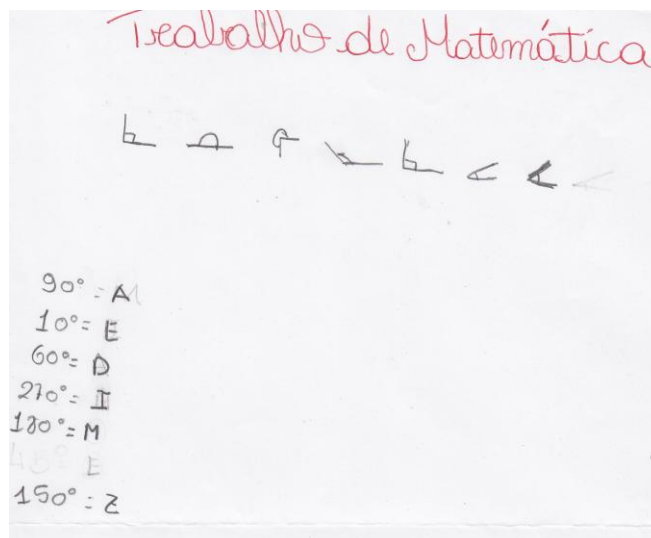 Trabalho de Matemática
90° = A
10° = E
60° = D
270° = I
180° = M
45° E
150° = Z